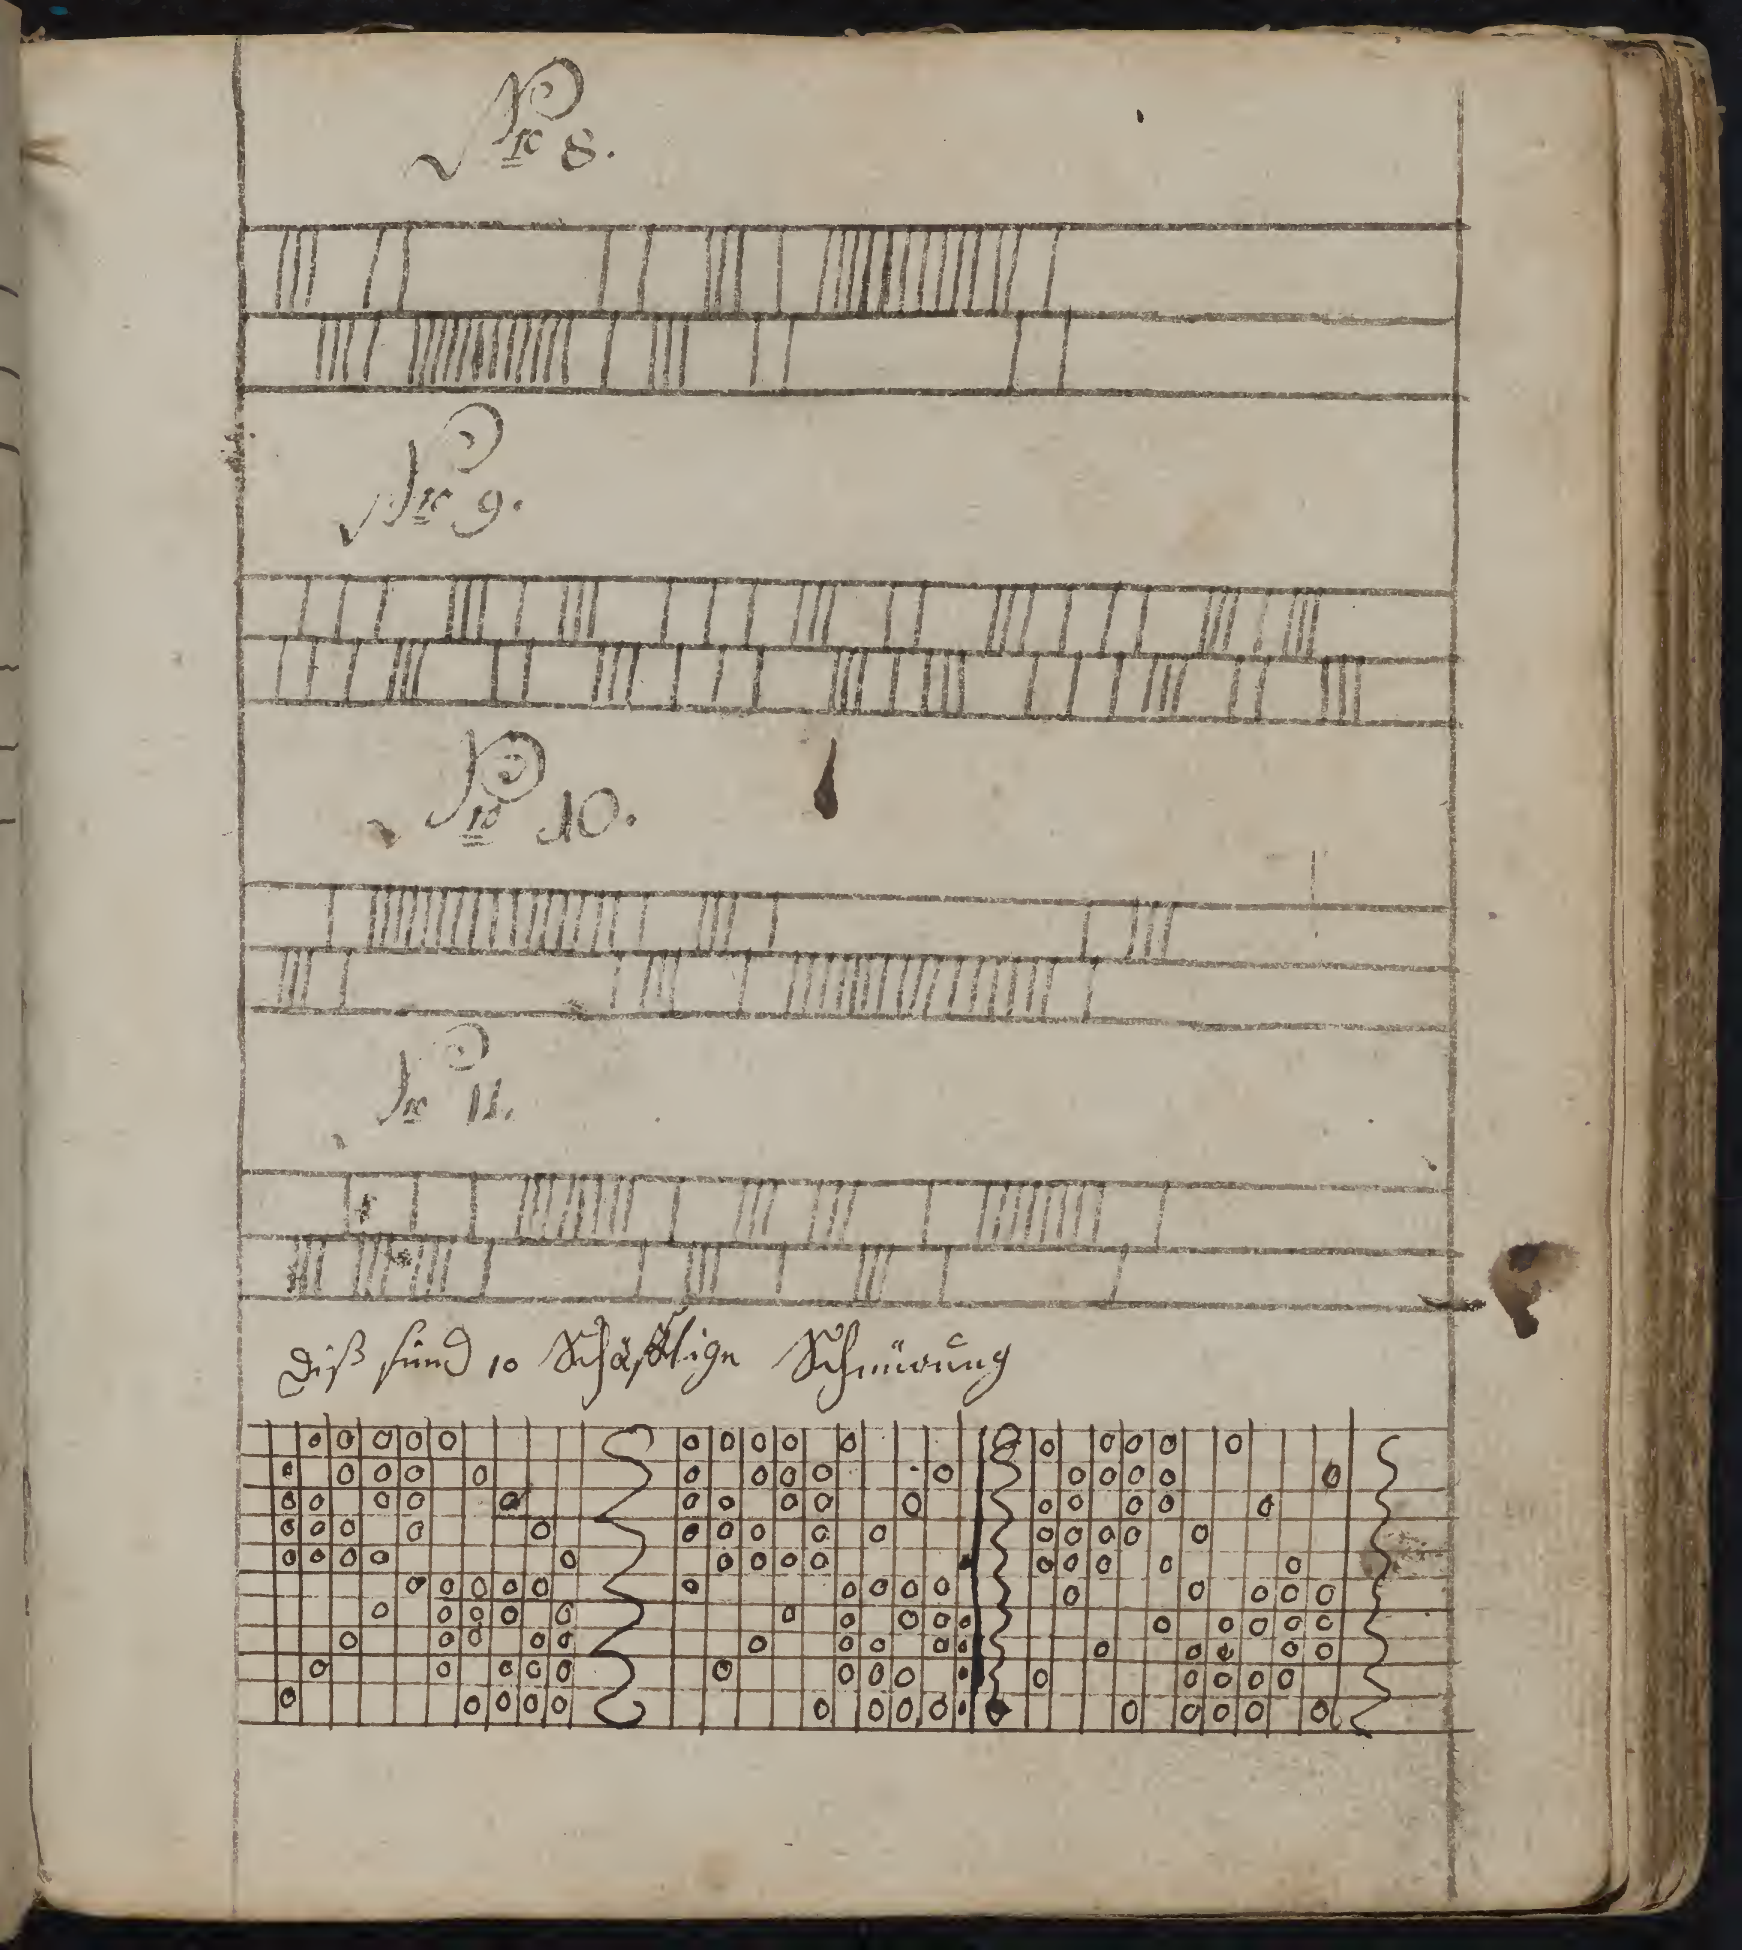 No 8.
No 9.
No 10.
No 11.
Diß sünd 10 Schäfftige Schnürung